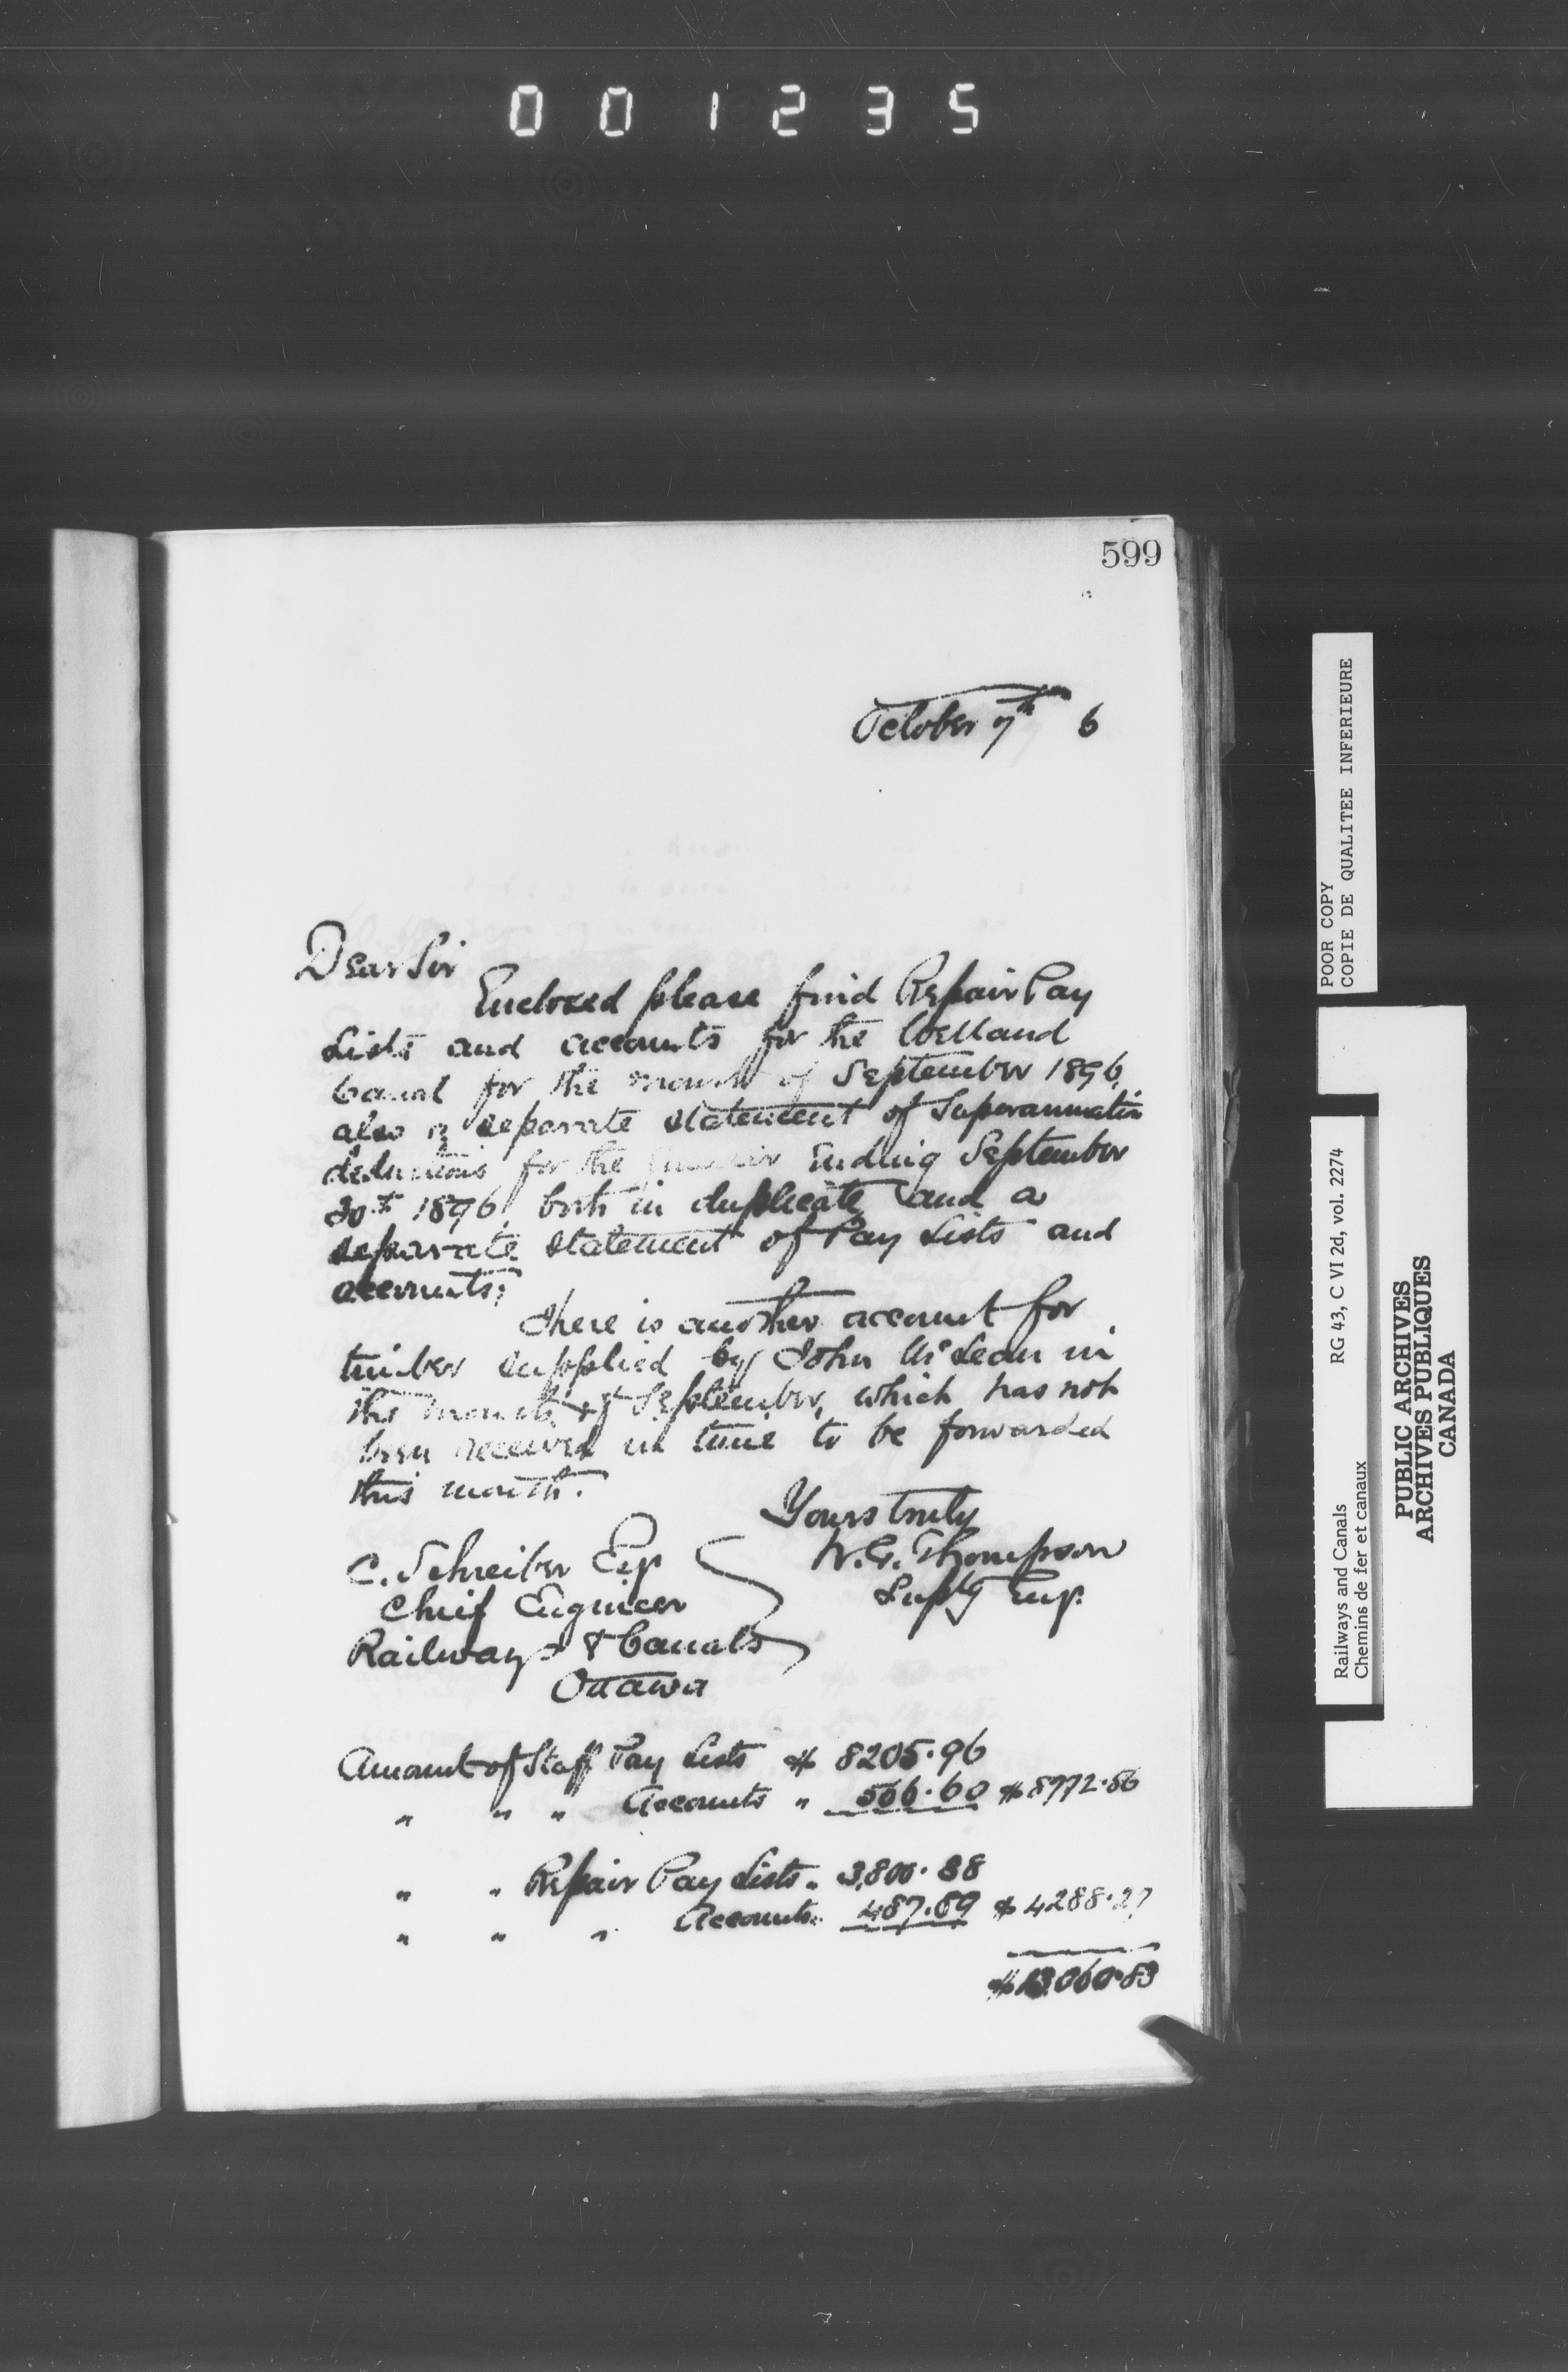 001235
599
October 7th 6
Dear Sir
Enclosed please find Repair Pay
Lists and accounts for the Welland
Canal for the month of September 1896
also a separate statement of Superannuation
deductions for the Quarter Ending September
30th 1896 both in duplicate and a
separate statement of Pay Lists and
accounts.
There is another account for
timber supplied by John McLean in
the month of September, which has not
been received in time to be forwarded
this month.
Yours truly
W.G. Thompson
Suptg Eng.
C. Schreiber Esq
Chief Engineer
Railways & Canals
Ottawa
Amount of Staff Pay Lists $ 8205.96
" " " Accounts " 566.60 $8772.56
" " Repair Pay Lists " 3,800.38
" " " Accounts " 487.89 $4288.27
$13.060.83
POOR COPY
COPIE DE QUALITEE INFERIEURE
Railways and Canals RG 43, C VI 2d, vol. 2274
Chemins de fer et canaux
PUBLIC ARCHIVES
ARCHIVES PUBLIQUES
CANADA